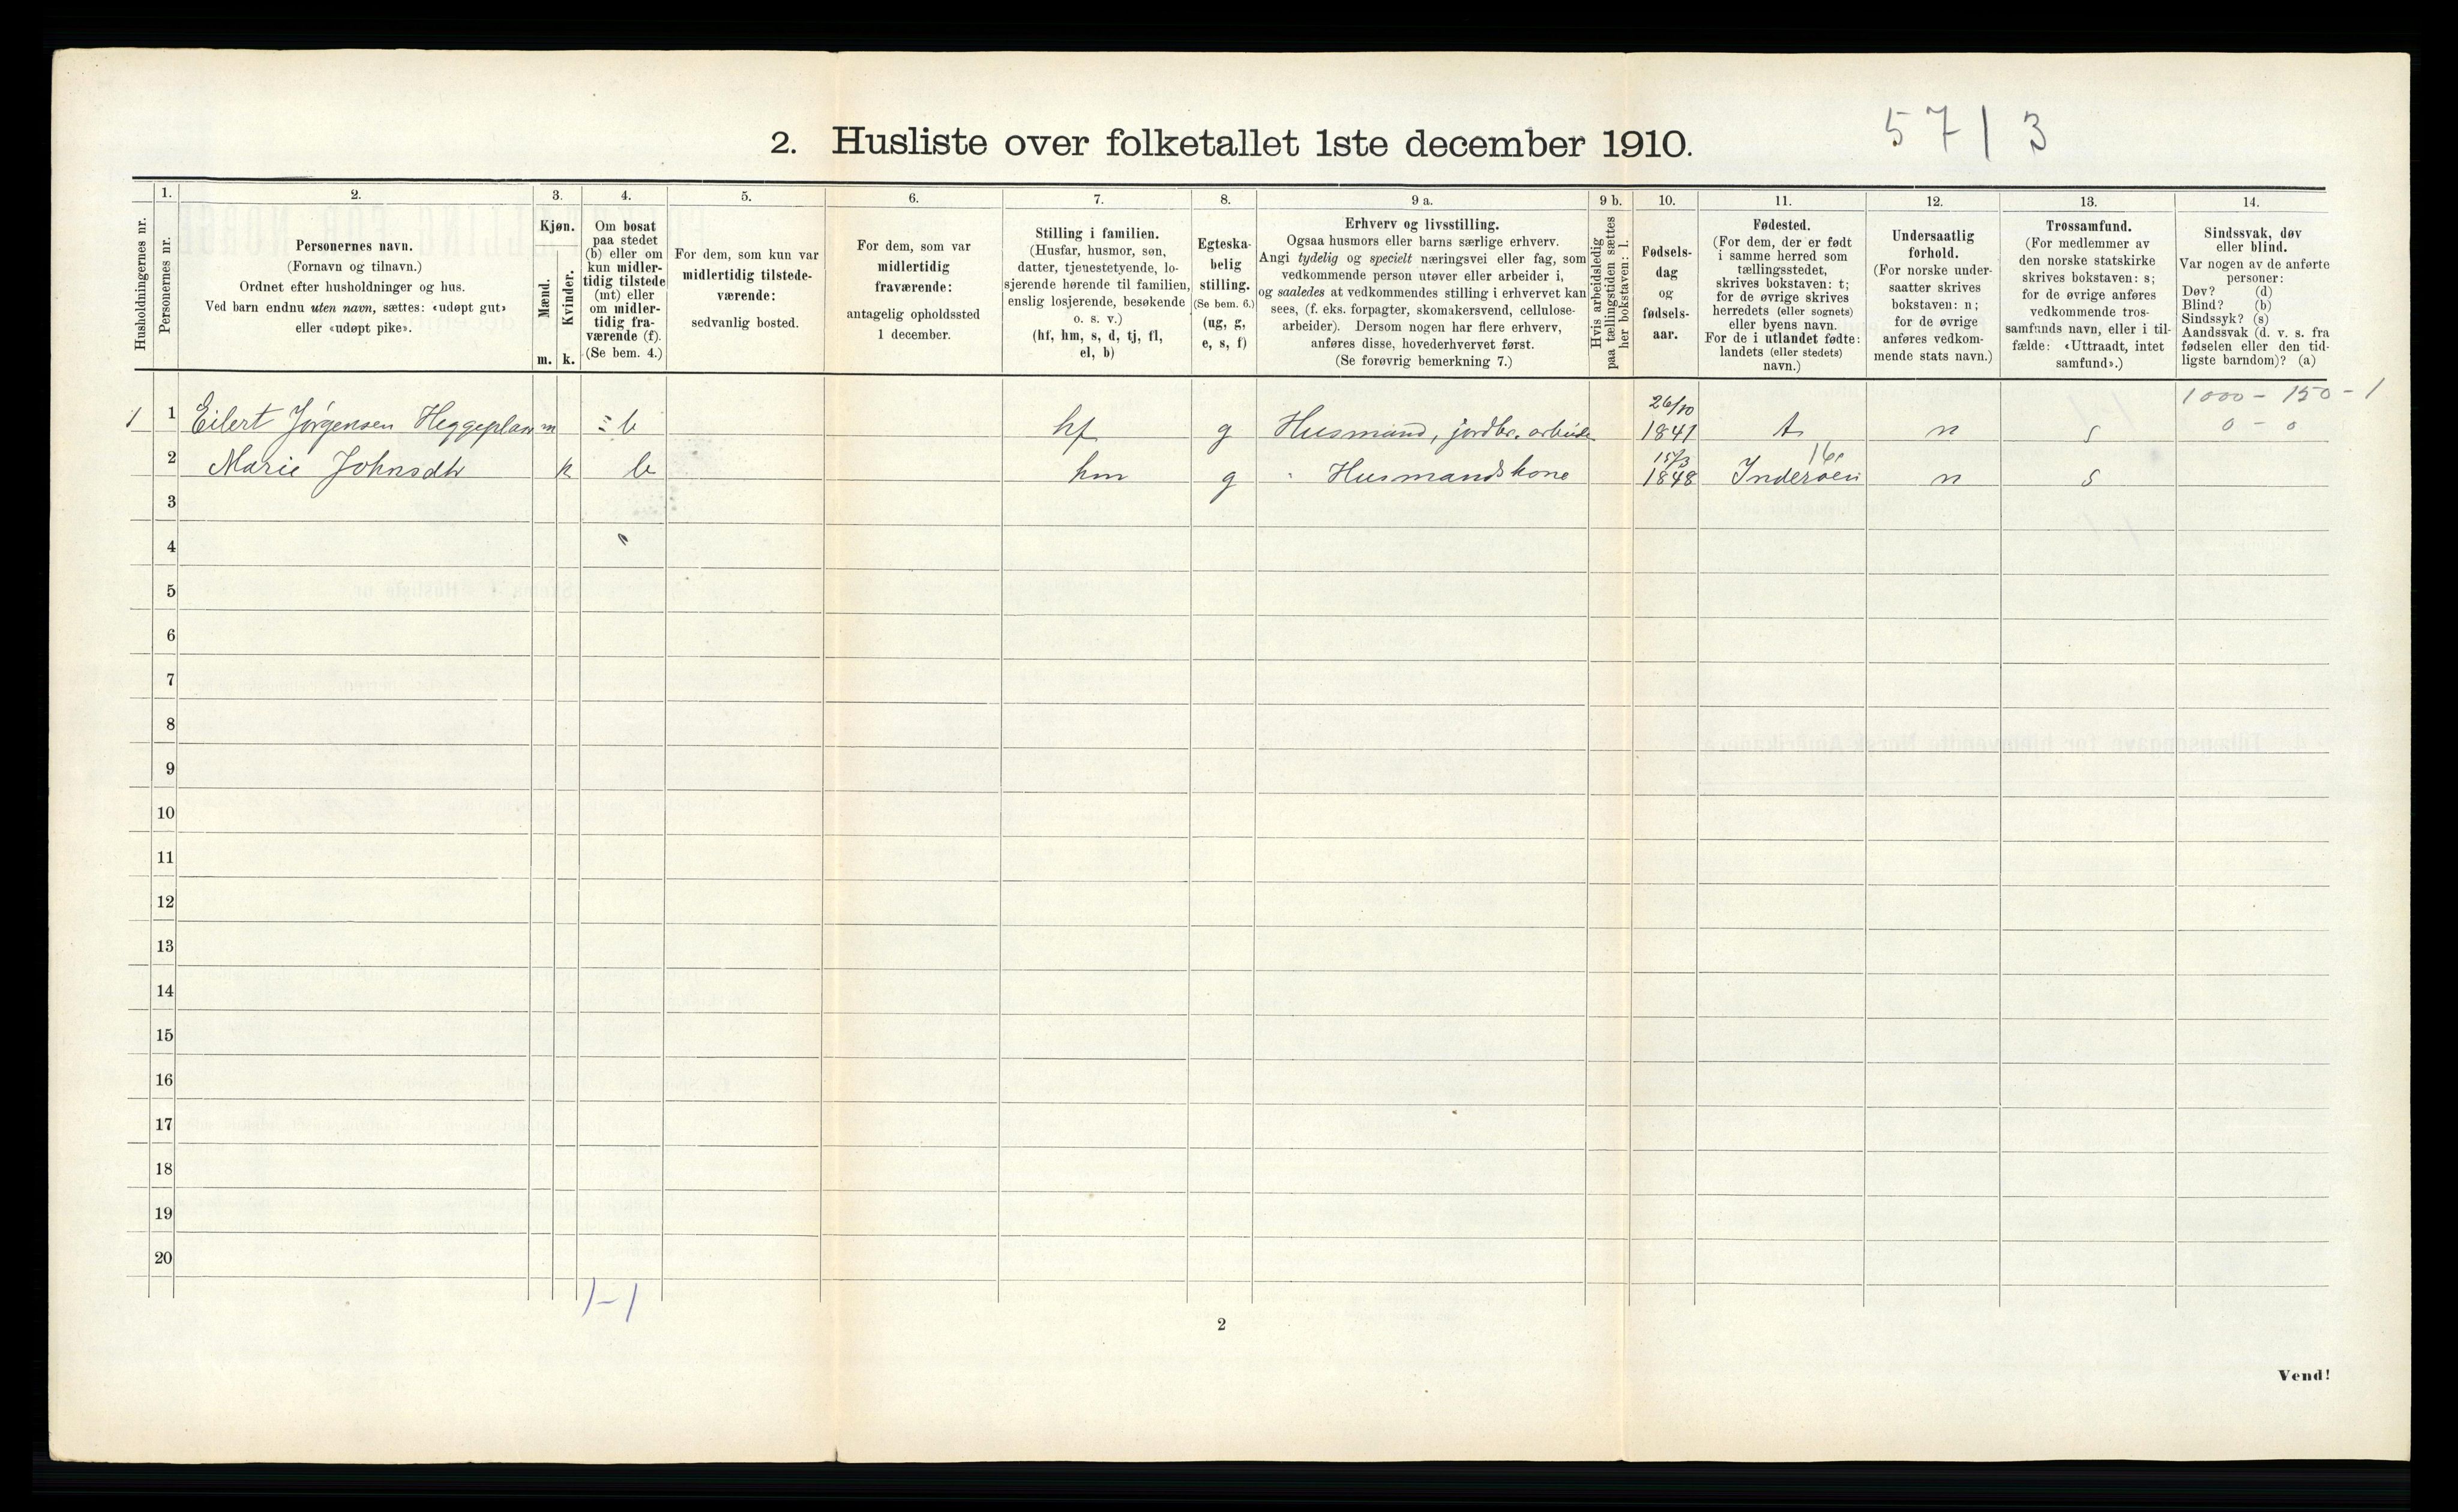 2. Husliste over folketallet 1ste december 1910.
57 | 3
Husholdningernes nr.
1.
Personernes nr.
2.
Personernes navn.
(Fornavn og tilnavn.)
Ordnet efter husholdninger og hus.
Ved barn endnu uten navn, sættes: «udøpt gut»
eller «udøpt pike».
3.
Kjøn.
Mænd.
Kvinder.
m. k.
4.
Om bosat
paa stedet
(b) eller om
kun midler-
tidig tilstede
(mt) eller
om midler-
tidig fra-
værende (f).
(Se bem. 4.)
5.
For dem, som kun var
midlertidig tilstede-
værende:
sedvanlig bosted.
6.
For dem, som var
midlertidig
fraværende:
antagelig opholdssted
1 december.
7.
Stilling i familien.
(Husfar, husmor, søn,
datter, tjenestetyende, lo-
sjerende hørende til familien,
enslig losjerende, besøkende
o. s. v.)
(hf, hm, s, d, tj, fl,
el, b)
8.
Egteska-
belig
stilling.
(Se bem. 6.)
(ug, g,
e, s, f)
9 a.
Erhverv og livsstilling.
Ogsaa husmors eller barns særlige erhverv.
Angi tydelig og specielt næringsvei eller fag, som
vedkommende person utøver eller arbeider i,
og saaledes at vedkommendes stilling i erhvervet kan
sees, (f. eks. forpagter, skomakersvend, cellulose-
arbeider). Dersom nogen har flere erhverv,
anføres disse, hovederhvervet først.
(Se forøvrig bemerkning 7.)
9 b.
Hvis arbeidsledig
paa tællingstiden sættes
her bokstaven: l.
10.
Fødsels-
dag
og
fødsels-
aar.
11.
Fødested.
(For dem, der er født
i samme herred som
tællingsstedet,
skrives bokstaven: t;
for de øvrige skrives
herredets (eller sognets)
eller byens navn.
For de i utlandet fødte:
landets (eller stedets)
navn.)
12.
Undersaatlig
forhold.
(For norske under-
saatter skrives
bokstaven: n;
for de øvrige
anføres vedkom-
mende stats navn.)
13.
Trossamfund.
(For medlemmer av
den norske statskirke
skrives bokstaven: s;
for de øvrige anføres
vedkommende tros-
samfunds navn, eller i til-
fælde: «Uttraadt, intet
samfund».)
14.
Sindssvak, døv
eller blind.
Var nogen av de anførte
personer:
Døv? (d)
Blind? (b)
Sindssyk? (s)
Aandssvak (d. v. s. fra
fødselen eller den tid-
ligste barndom)? (a)
1000 - 150 - 1
0 - 0
1 1 Eilert Jørgensen Heggeplan m b hf g Husmand, jordbr. arbeide 26/10 1841 t n s
2 Marie Johnsdtr k b hm g " Husmandskone 15/3 1848 Inderøen 16. n s
3
4
5
6
7
8
9
10
11
12
13
14
15
16
17
18
19
20
1-1
2
Vend!